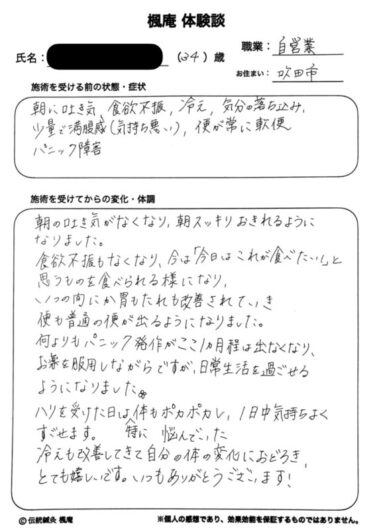 楓庵 体験談
氏名： (34) 歳
職業： 自営業
お住まい： 吹田市
施術を受ける前の状態・症状
朝に吐き気、食欲不振、冷え、気分の落ち込み、
少量で満腹感(気持ち悪い)、便が常に軟便
パニック障害
施術を受けてからの変化・体調
朝の吐き気がなくなり、朝スッキリおきれるように
なりました。
食欲不振もなくなり、今は「今日はこれが食べたい!」と
思うものを食べられる様になり、
いつの間にか胃もたれも改善されていき
便も普通の便が出るようになりました。
何よりもパニック発作がここ1ヵ月程は出なくなり、
お薬を服用しながらですが、日常生活を過ごせる
ようになりました。
ハリを受けた日は体もポカポカし、1日中気持ちよく
すごせます。 特に 悩んでいた
冷えも改善してきて自分の体の変化におどろき、
とても嬉しいです。いつもありがとうございます!
© 伝統鍼灸 楓庵
※個人の感想であり、効果効能を保証するものではありません。